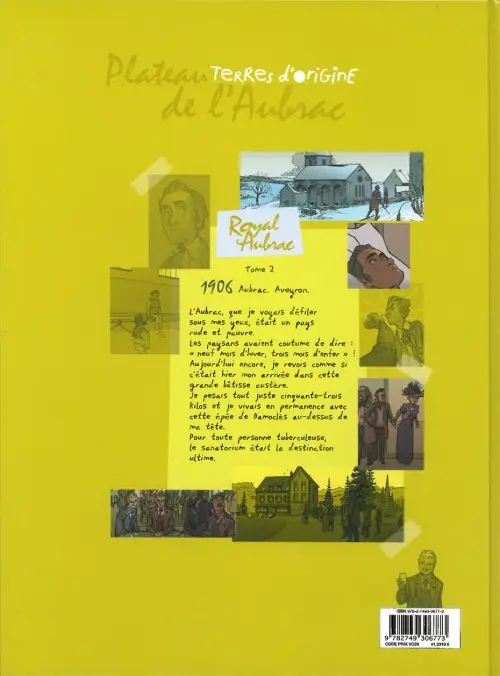 Plateau TERRES d'ORIGINE
de l'Aubrac
Royal
Aubrac
Tome 2
1906 Aubrac. Aveyron.
L'Aubrac, que je voyais défiler
sous mes yeux, était un pays
rude et pauvre.
Les paysans avaient coutume de dire :
« neuf mois d'hiver, trois mois d'enfer » !
Aujourd'hui encore, je revois comme si
c'était hier mon arrivée dans cette
grande bâtisse austère.
Je pesais tout juste cinquante-trois
kilos et je vivais en permanence avec
cette épée de Damoclès au-dessus de
ma tête.
Pour toute personne tuberculeuse,
le sanatorium était la destination
ultime.
ISBN 978-2-7493-0677-3
9 782749 306773
CODE PRIX VO28 41.2019.5